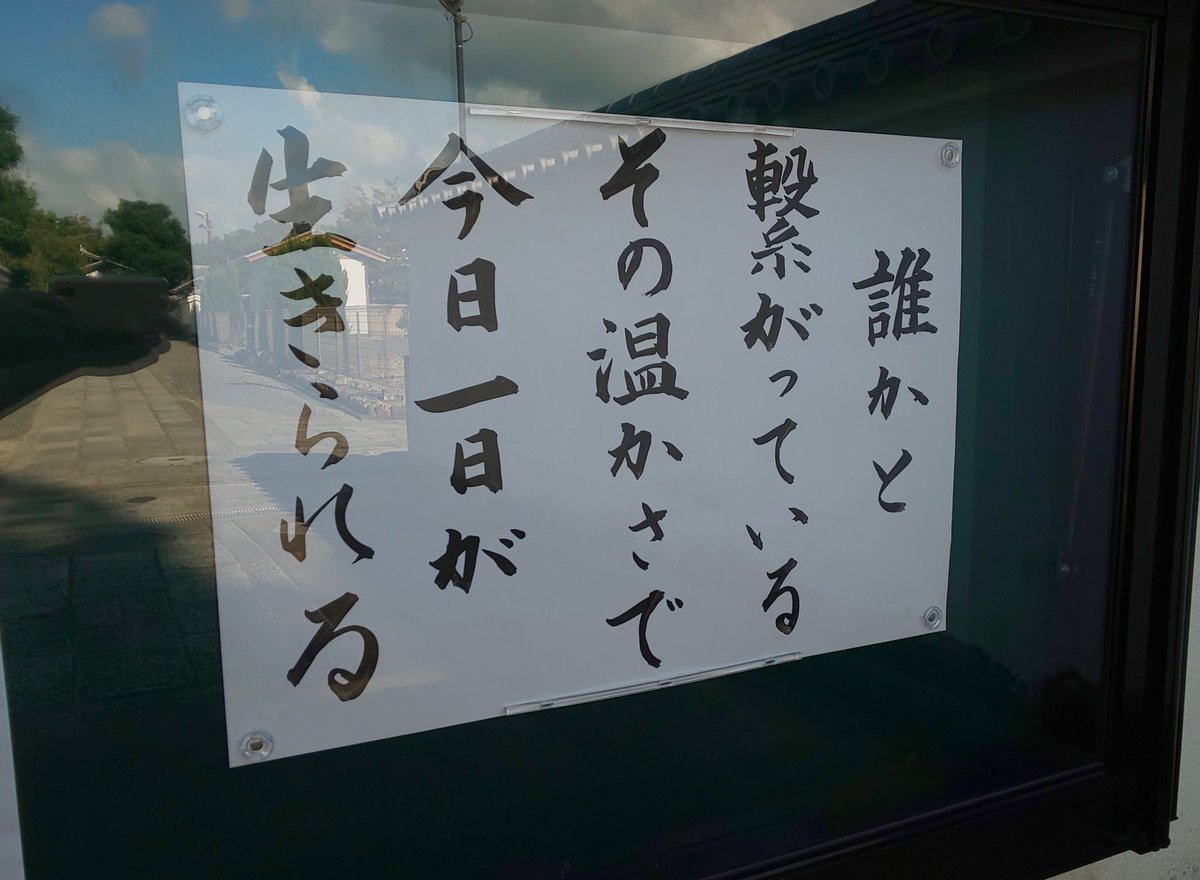 誰かと
繋がっている
その温かさで
今日一日が
生きられる